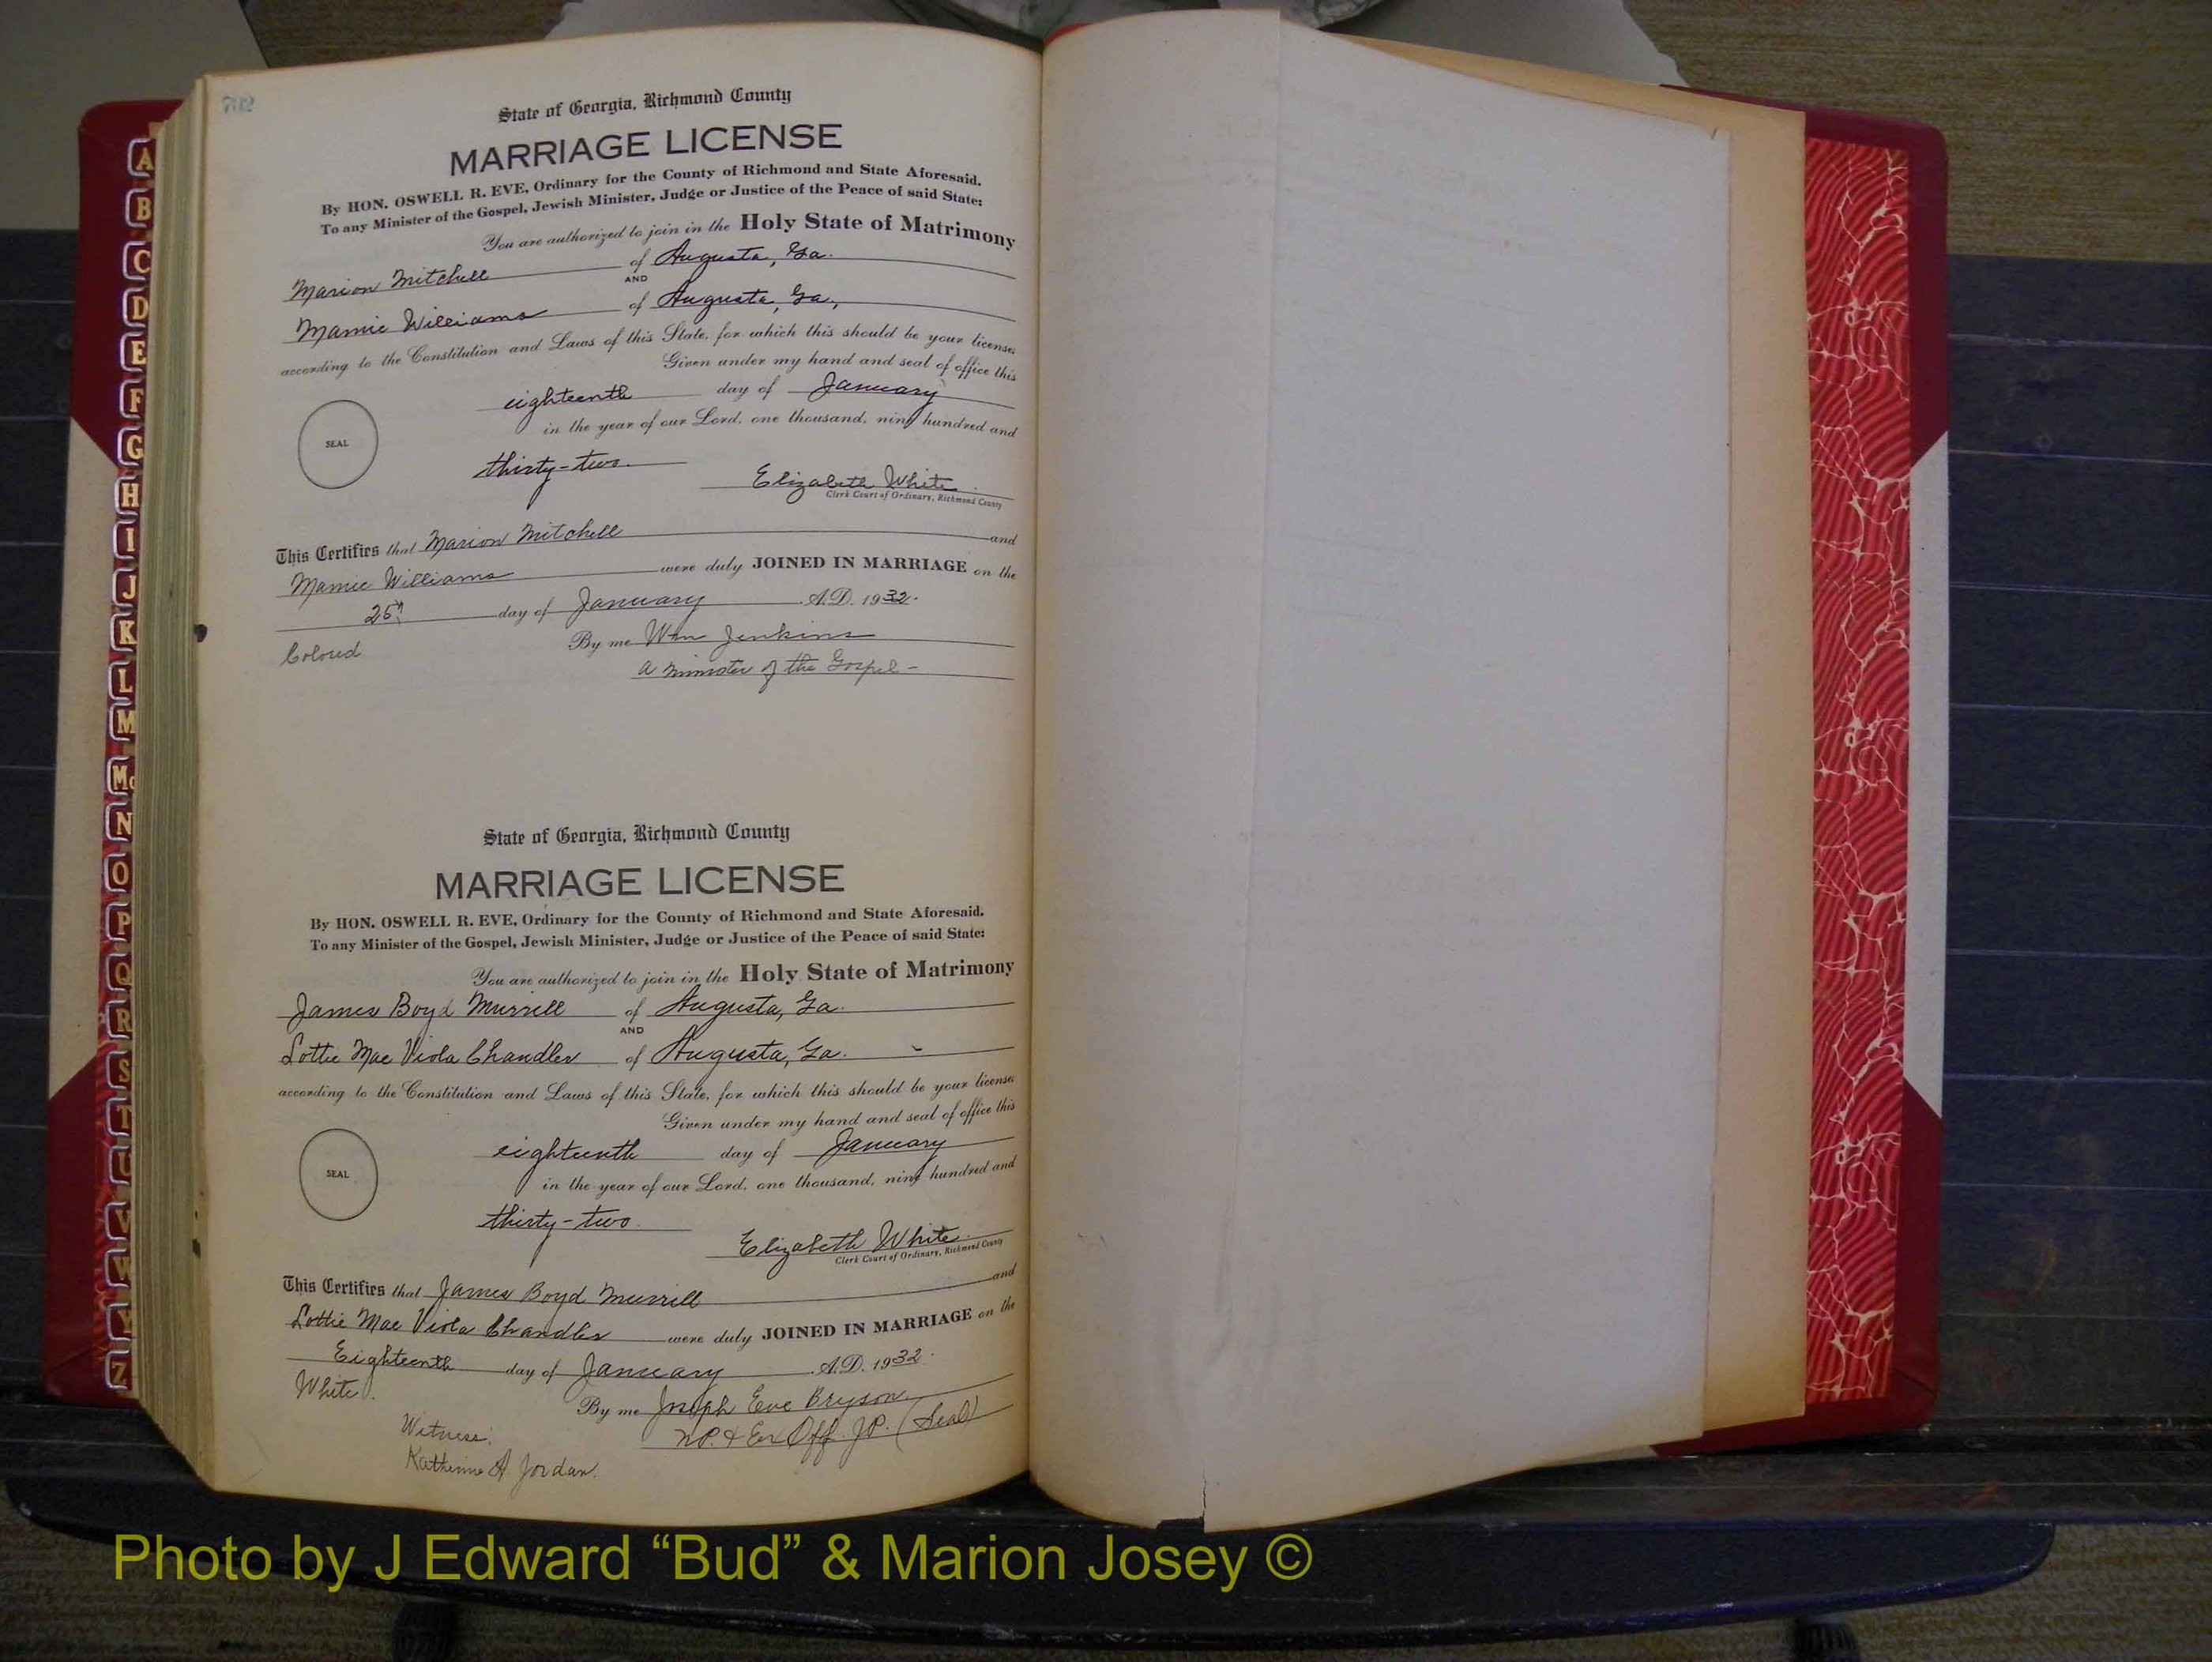 702
State of Georgia, Richmond County
MARRIAGE LICENSE
By HON. OSWELL R. EVE, Ordinary for the County of Richmond and State Aforesaid.
To any Minister of the Gospel, Jewish Minister, Judge or Justice of the Peace of said State:
You are authorized to join in the Holy State of Matrimony
Marion Mitchell of Augusta, Ga.
AND
Mamie Williams of Augusta, Ga.,
according to the Constitution and Laws of this State, for which this should be your license;
Given under my hand and seal of office this
eighteenth day of January
in the year of our Lord, one thousand, nine hundred and
SEAL
thirty-two.
Elizabeth White
Clerk Court of Ordinary, Richmond County
This Certifies that Marion Mitchell and
Mamie Williams were duly JOINED IN MARRIAGE on the
25th day of January A.D. 1932.
Colored By me Wm Jenkins
a minister of the Gospel-
State of Georgia, Richmond County
MARRIAGE LICENSE
By HON. OSWELL R. EVE, Ordinary for the County of Richmond and State Aforesaid.
To any Minister of the Gospel, Jewish Minister, Judge or Justice of the Peace of said State:
You are authorized to join in the Holy State of Matrimony
James Boyd Murrell of Augusta, Ga.
AND
Lottie Mae Viola Chandler of Augusta, Ga.
according to the Constitution and Laws of this State, for which this should be your license;
Given under my hand and seal of office this
eighteenth day of January
in the year of our Lord, one thousand, nine hundred and
SEAL
thirty-two.
Elizabeth White
Clerk Court of Ordinary, Richmond County
This Certifies that James Boyd Murrell and
Lottie Mae Viola Chandler were duly JOINED IN MARRIAGE on the
Eighteenth day of January A.D. 1932.
White. By me Joseph Eve Bryson
N.P. & Ex Off. J.P. (Seal)
Witness:
Katherine A. Jordan.
A
B
C
D
E
F
G
H
I
J
K
L
M
Mc
N
O
P
Q
R
S
T
U
V
W
Y
Z
Photo by J Edward “Bud” & Marion Josey ©